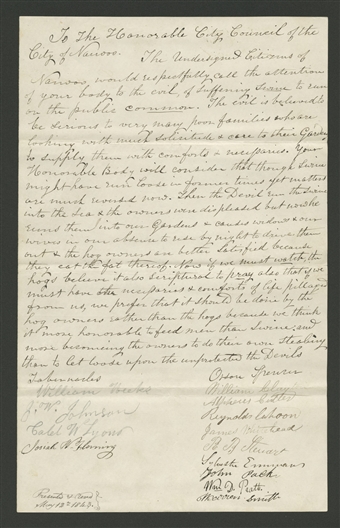 To The Honorable City Council of the
City of Nauvoo. The Undersigned Citizens of
Nauvoo would respectfully call the attention
of your body to the evil, of suffering swine to run
on the public common. The evil is believed to
be serious to very many poor families who are
looking with much solicitude & care to their Gardens
to supply them with comforts & necessaries. Your
Honorable Body will consider that though swine
might have run loose in former times yet matters
are much revers'd now. Then the Devil run the swine
into the sea & the owners were displeased but now he
runs them into our Gardens & causes widows & our
wives in our absence to rise by night to drive them
out & the hog owners are better satisfied because
they eat the fat thereof. Now if we must watch, the
hogs believe it also scriptural to pray also that if we
must have the necessaries & comforts of life pillaged
from us, we prefer that it should be done by the
hog owners rather than the hogs because we think
it more honorable to feed men than swine; and
more becoming the owners to do their own stealing
than to let loose upon the unprotected the Devils
Tabernacles
Orson Spencer
William Weeks
William Clay
J. W. Johnson
Caleb W. Lyons
Reynolds Cahoon
Josiah W. Fleming
James
B B
Emmons
John Pack
Wm D Pratt
Warren Smith
May 12th 1843